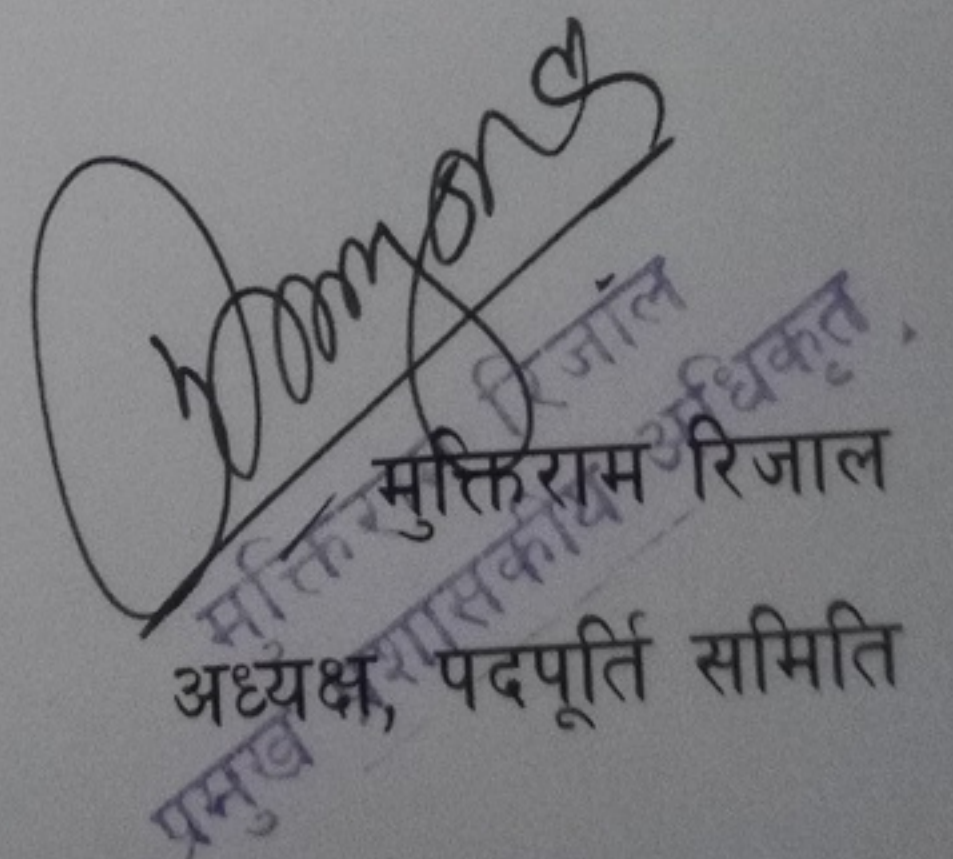 मुक्तिराम रिजाल
प्रमुख प्रशासकीय अधिकृत
मुक्तिराम रिजाल
अध्यक्ष, पदपूर्ति समिति